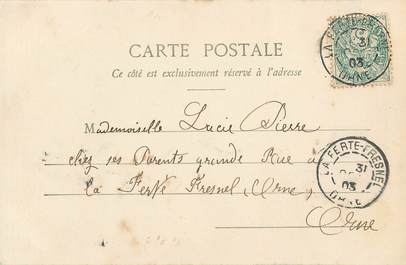 LA FERTÉ-FRESNEL
31
03
ORNE
CARTE POSTALE
Ce côté est exclusivement réservé à l'adresse
Mademoiselle Lucie Pierre
chez ses Parents grande Rue à
la Ferté Fresnel (Orne)
Orne
LA FERTE-FRESNEL
31
03
ORNE